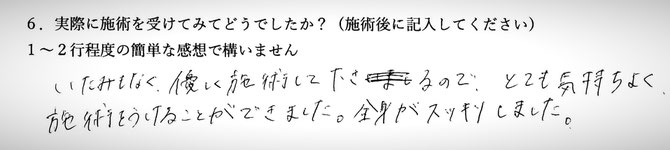 ６．実際に施術を受けてみてどうでしたか？（施術後に記入してください）
１～２行程度の簡単な感想で構いません
いたみもなく、優しく施術して下さるので、とても気持ちよく
施術をうけることができました。全身がスッキリしました。